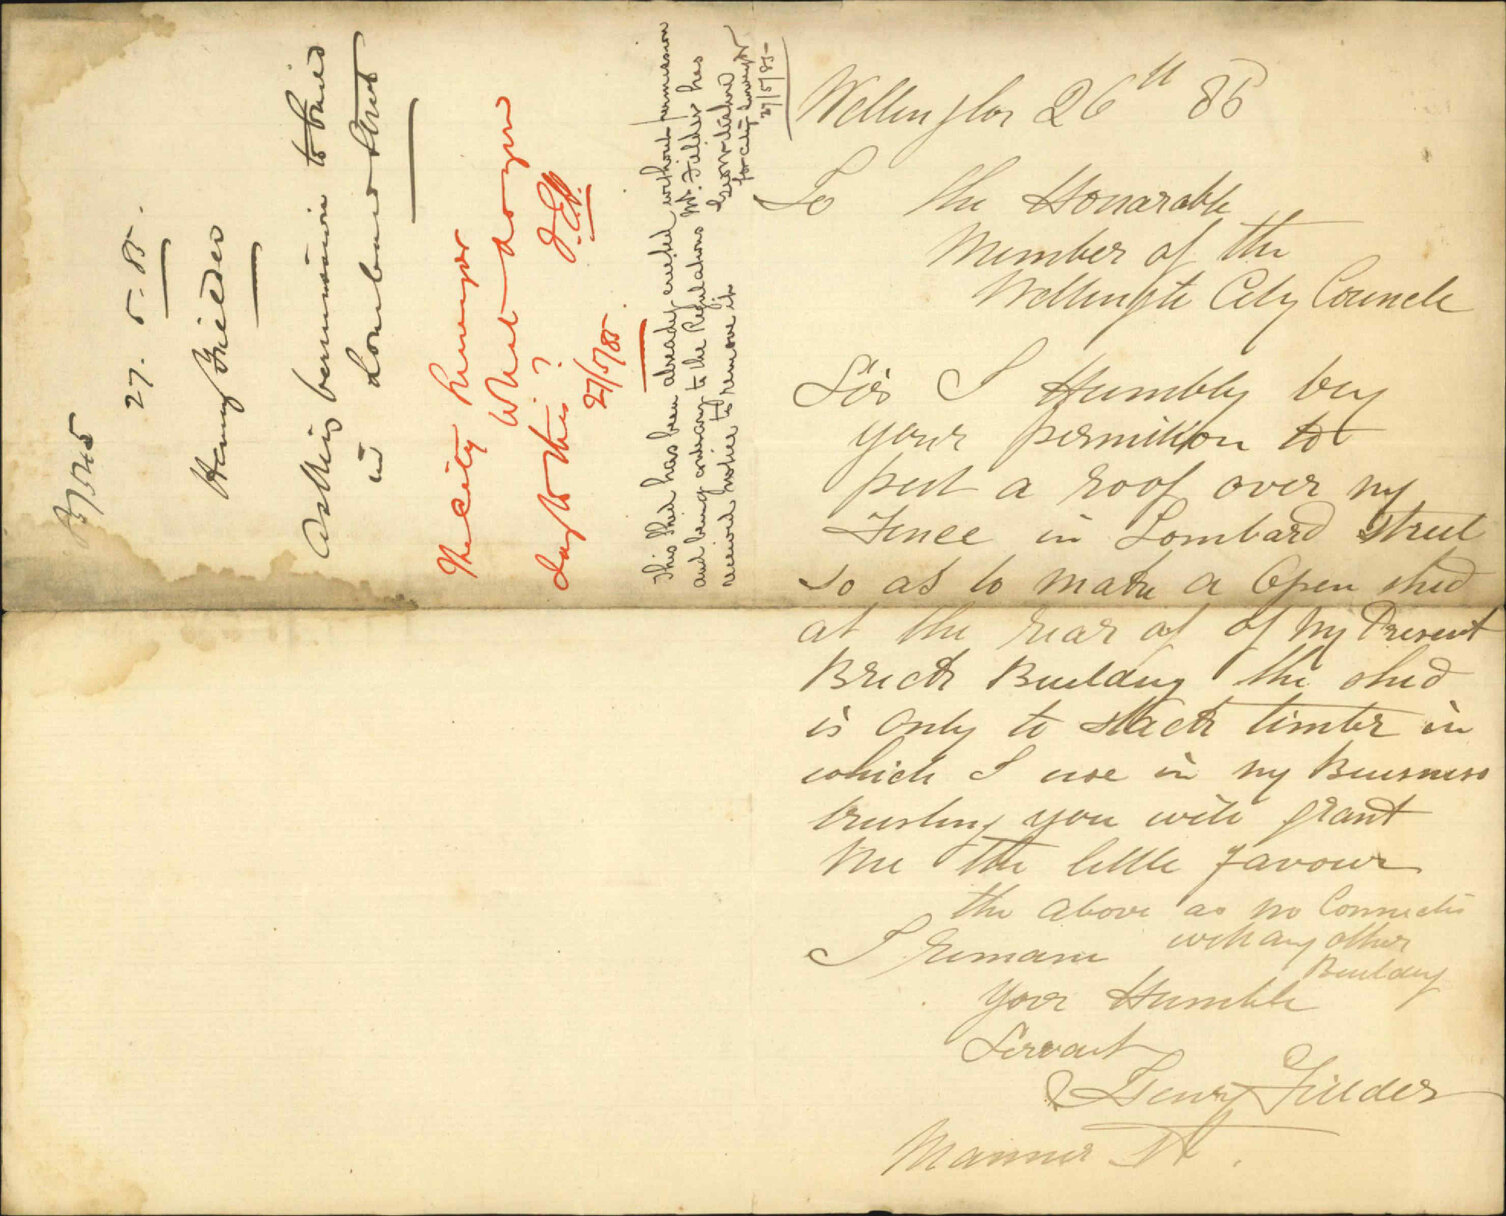 Wellington 26th 85
To the Honarable
Member of the
Wellington City Council
Sirs I Humbly beg
your permition to
put a roof over my
Fence in Lombard Street
so as to make a Open shed
at the rear of of My Present
Brick Building the shed
is only to stack timber in
which I use in my Buisness
trusting you will grant
me the little favour
the above as no Connection
with any other
Building
I remain
Your Humble
Servant
Henry Fielder
Manners St.
27. 5. 85.
Henry Fielder
Asking permission to build
in Lombard Street
The City Surveyor
What do you
say to this?
27/5/85
This Shed has been already erected without permission
and being contrary to the Regulations Mr. Fielder has
received notice to remove it
for City Surveyor
27/5/85